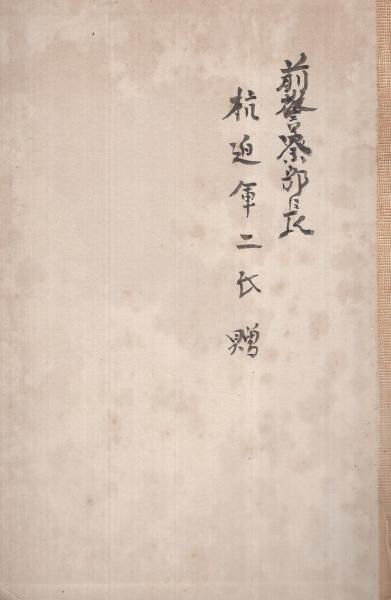 前警察部長
杭迫軍二氏贈